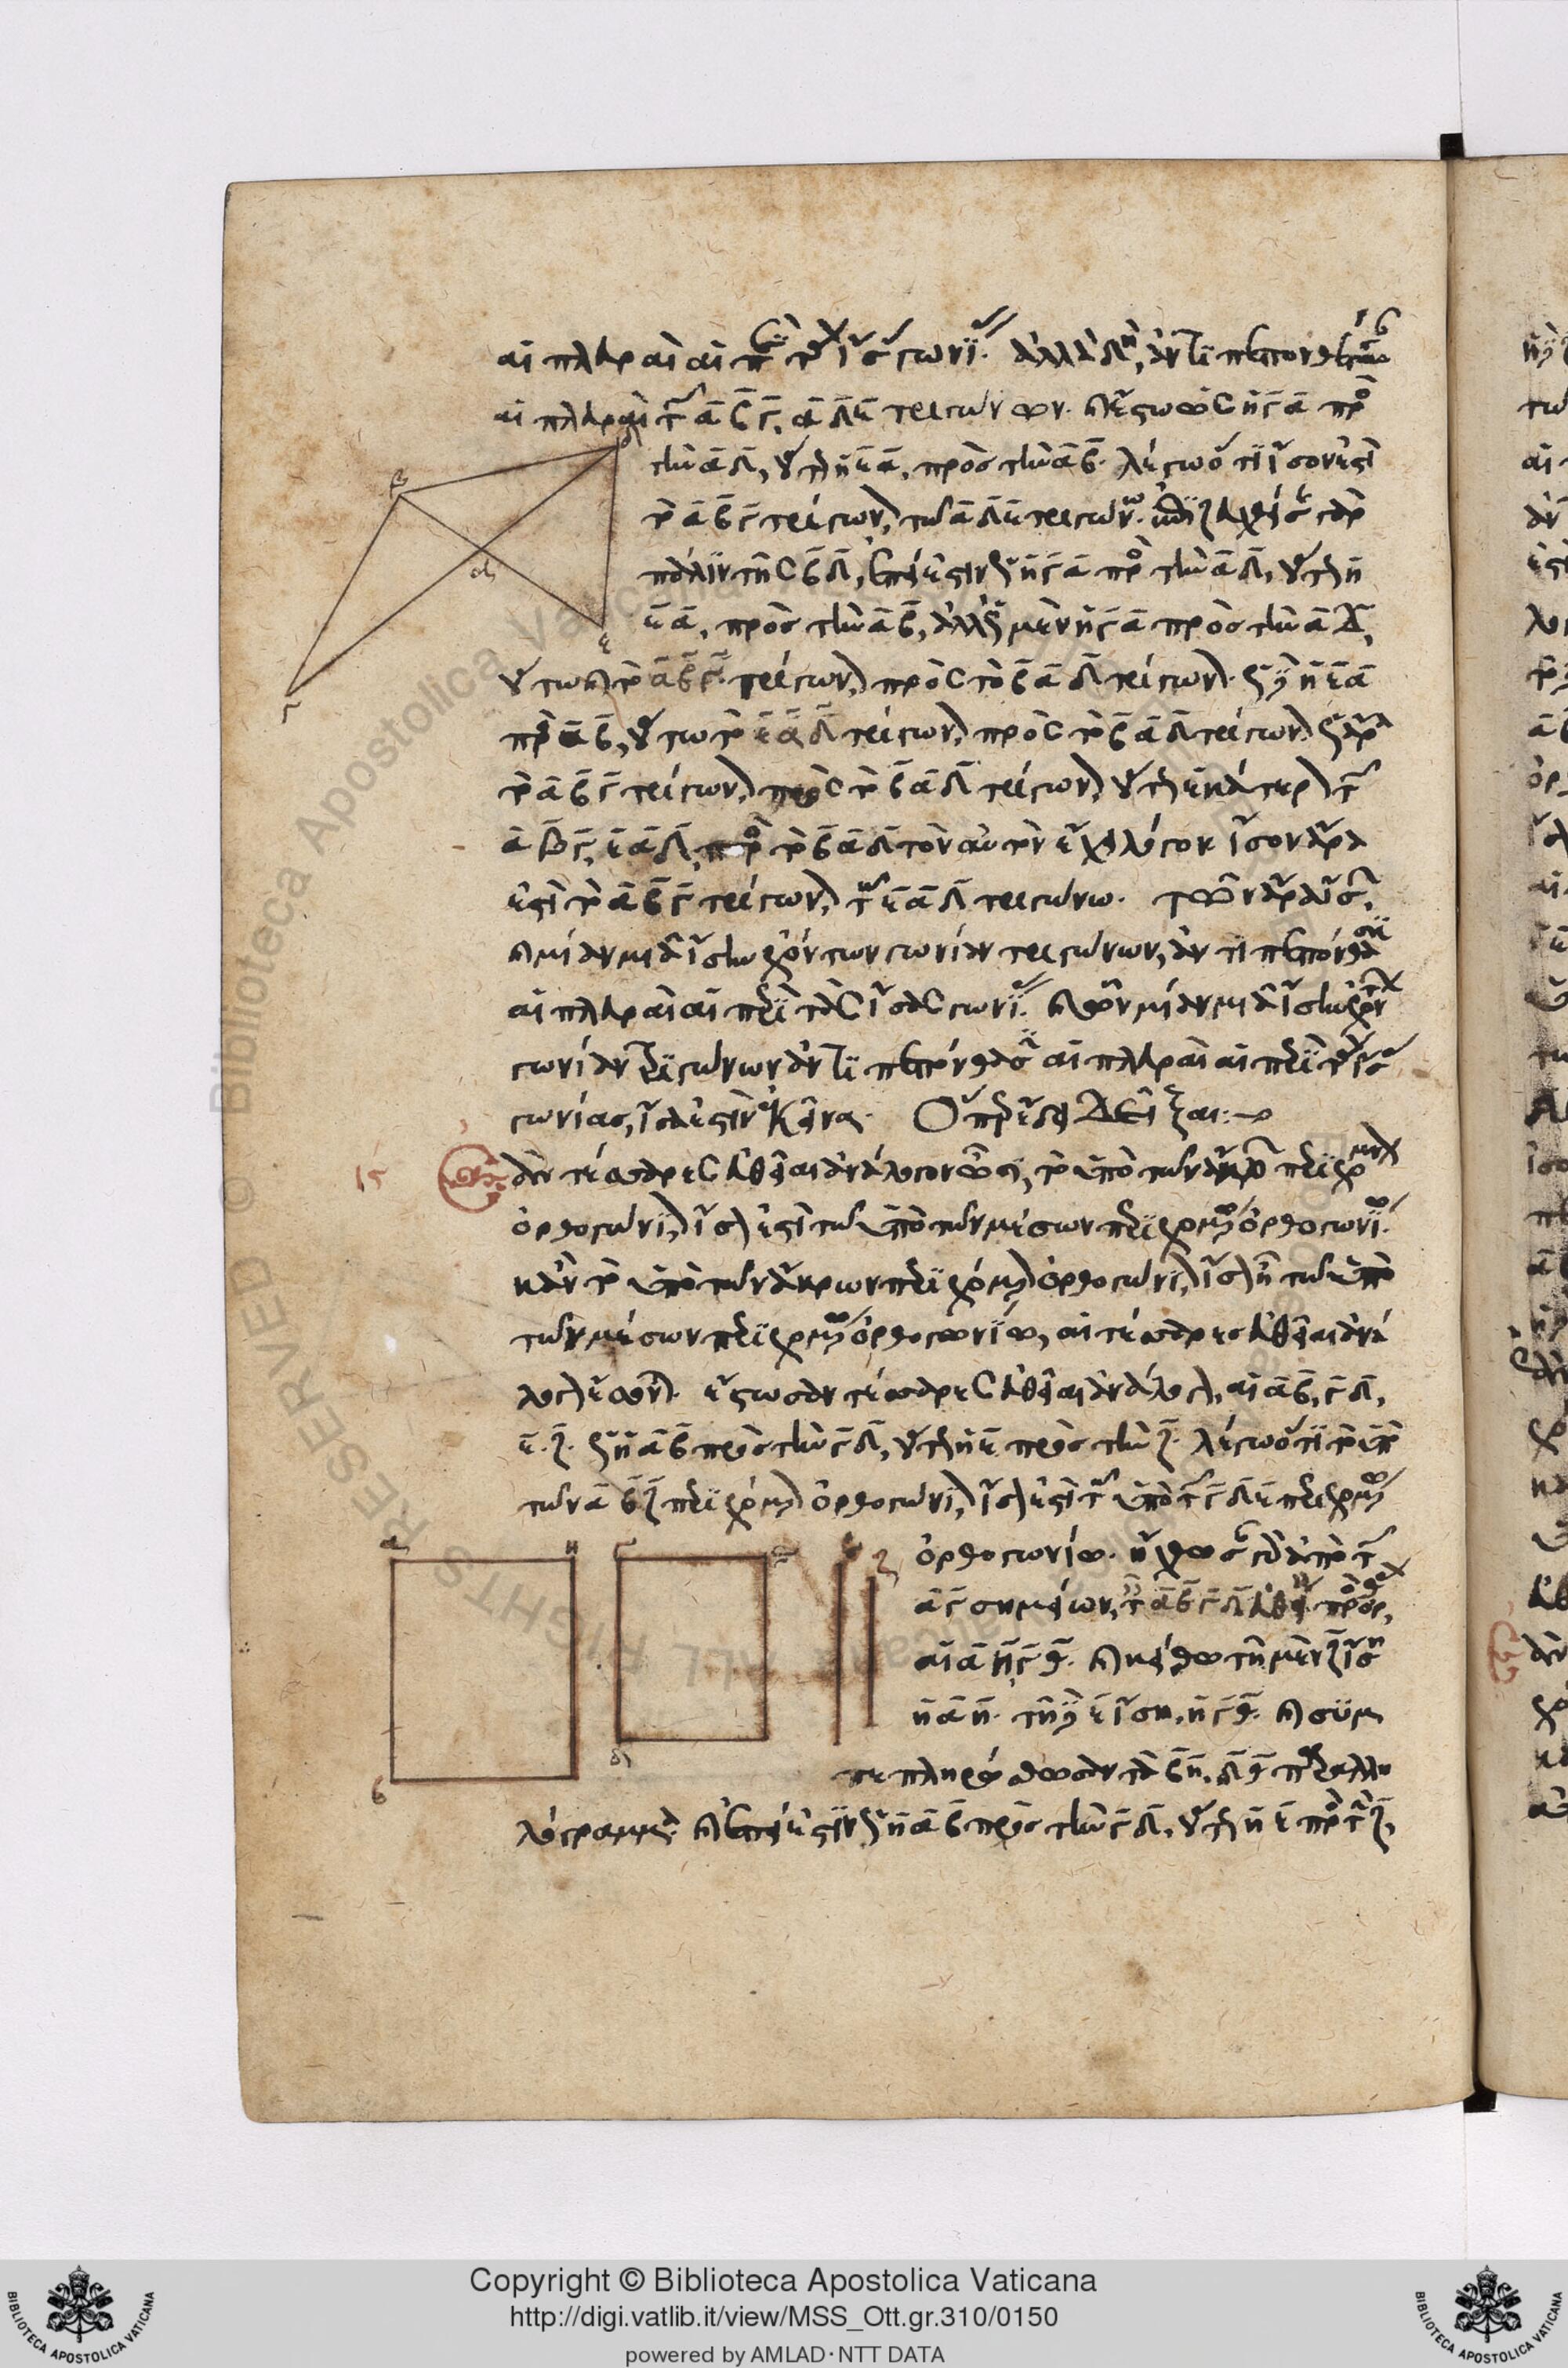 αἱ πλευραὶ αἱ περὶ τὰς ἴσας γωνίας. ἀλλὰ δὴ, ἀντιπεπονθέτωσαν
αἱ πλευραὶ τῶν α̅β̅γ̅, α̅δ̅ε̅ τριγώνων. καὶ ἔστω ὡς ἡ γ̅α̅ πρὸς
τὴν α̅δ̅, οὕτως ἡ ε̅α̅, πρὸς τὴν α̅β̅. λέγω ὅτι ἴσον ἐστὶ
τὸ α̅β̅γ̅ τρίγωνον, τῶ α̅δ̅ε̅ τριγώνω. ἐπιζευχθείσης γὰρ
πάλιν τῆς β̅δ̅, ἐπεί ἐστιν ὡς ἡ γ̅α̅ πρὸς τὴν α̅δ̅, οὕτως ἡ
ε̅α̅, πρὸς τὴν α̅β̅, ἀλλ' ὡς μὲν ἡ γ̅α̅ πρὸς τὴν α̅δ̅,
οὕτω καὶ τὸ α̅β̅γ̅ τρίγωνον, πρὸς τὸ β̅α̅δ̅ τρίγωνον. ὡς δὲ ἡ ε̅α̅
πρὸς α̅β̅, οὕτω τὸ ε̅α̅δ̅ τρίγωνον, πρὸς τὸ β̅α̅δ̅ τρίγωνον. ὡς ἄρα
τὸ α̅β̅γ̅ τρίγωνον, πρὸς τὸ β̅α̅δ̅ τρίγωνον, οὕτως ἑκάτερον τῶν
α̅β̅γ̅, ε̅α̅δ̅, πρὸς τὸ β̅α̅δ̅ τὸν αὐτὸν ἔχει λόγον. ἴσον ἄρα
ἐστὶ τὸ α̅β̅γ̅ τρίγωνον, τῶ ε̅α̅δ̅ τριγώνω. τῶν ἄρα ἴσων,
καὶ μίαν μιᾶ ἴσην ἐχόντων γωνίαν τριγώνων, ἀντιπεπόνθασιν
αἱ πλευραὶ αἱ περὶ τὰς ἴσας γωνίας. καὶ ὧν μίαν μιᾶ ἴσην ἐχόντων
γωνίαν τριγώνων ἀντιπεπόνθασιν αἱ πλευραὶ αἱ περὶ τὰς ἴσας
γωνίας, ἴσα ἐστὶν ἐκεῖνα. ὅπερ ἔδει δεῖξαι:
ιϛ ἐὰν τέσσαρες εὐθεῖαι ἀνάλογον ὦσι, τὸ ὑπὸ τῶν ἄκρων περιεχόμενον
ὀρθογώνιον, ἴσον ἐστὶ τῶ ὑπὸ τῶν μέσων περιεχομένω ὀρθογωνίω.
κἂν τὸ ὑπὸ τῶν ἄκρων περιεχόμενον ὀρθογώνιον, ἴσον ᾖ τῶ ὑπὸ
τῶν μέσων περιεχομένω ὀρθογωνίω, αἱ τέσσαρες εὐθεῖαι ἀνά
λογον ἔσονται. ἔστωσαν τέσσαρες εὐθεῖαι ἀνάλογον, αἱ α̅β̅, γ̅δ̅,
ε̅. ζ̅. ὡς ἡ α̅β̅ πρὸς τὴν γ̅δ̅, οὕτως ἡ ε̅ πρὸς τὴν ζ̅. λέγω ὅτι τὸ ὑπὸ
τῶν α̅β̅ ζ̅ περιεχόμενον ὀρθογώνιον, ἴσον ἐστὶ τῶ ὑπὸ τῶν γ̅δ̅ ε̅ περιεχομένω
ὀρθογωνίω. ἤχθωσαν γὰρ ἀπὸ τῶν
α̅ γ̅ σημείων, ταῖς α̅β̅ γ̅δ̅ εὐθείαις πρὸς ὀρθὰς,
αἱ α̅η̅ γ̅θ̅. καὶ κείσθω τῆ μὲν ζ̅ ἴση
ἡ α̅η̅. τῆ δὲ ε̅ ἴση, ἡ γ̅θ̅. καὶ συμ
πεπληρώσθωσαν τὰ β̅η̅, δ̅θ̅ παραλλη
λόγραμμα. καὶ ἐπεί ἐστιν ὡς ἡ α̅β̅ πρὸς τὴν γ̅δ̅, οὕτως ἡ ε̅ πρὸς τὴν ζ̅,
Copyright © Biblioteca Apostolica Vaticana
http://digi.vatlib.it/view/MSS_Ott.gr.310/0150
powered by AMLAD·NTT DATA